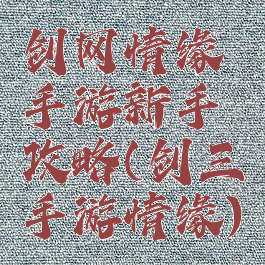 剑网情缘
手游新手
攻略(剑三
手游情缘)